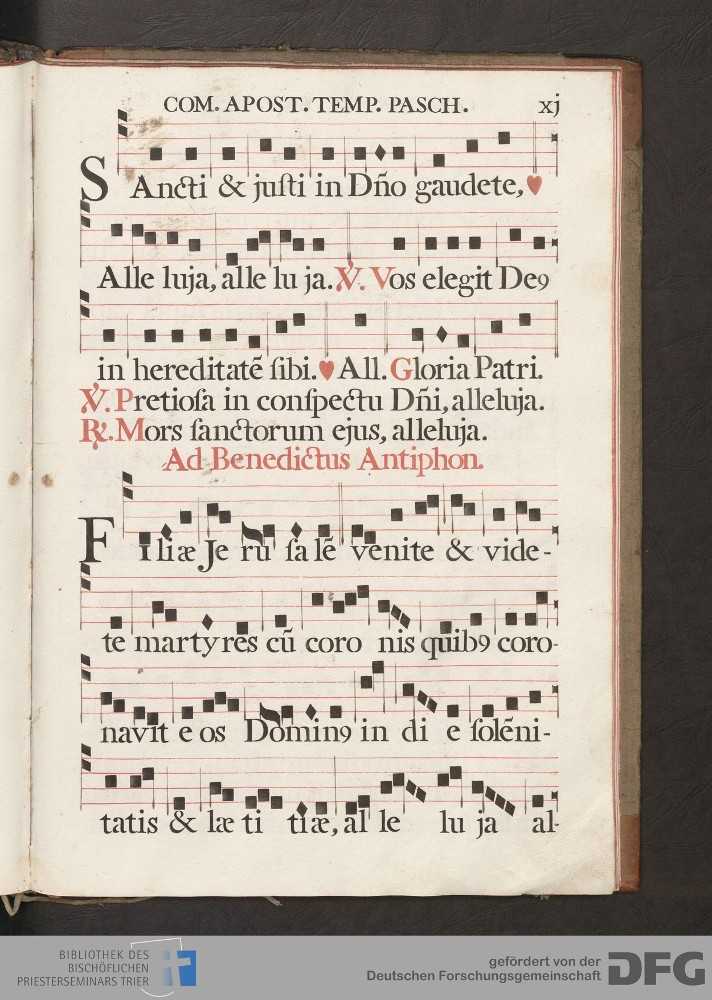 COM. APOST. TEMP. PASCH. xj
SAncti & juſti in Dño gaudete,
Alle luja, alle lu ja. ℣. Vos elegit Deꝰ
in hereditatē ſibi. All. Gloria Patri.
℣. Pretioſa in conſpectu Dñi, alleluja.
℟. Mors ſanctorum ejus, alleluja.
Ad Benedictus Antiphon.
FIliæ Je ru ſa lē venite & vide-
te martyres cū coro nis quibꝰ coro-
navit e os Dominꝰ in di e ſolēni-
tatis & læ ti tiæ, al le lu ja al-
BIBLIOTHEK DES
BISCHÖFLICHEN
PRIESTERSEMINARS TRIER
gefördert von der
Deutschen Forschungsgemeinschaft
DFG